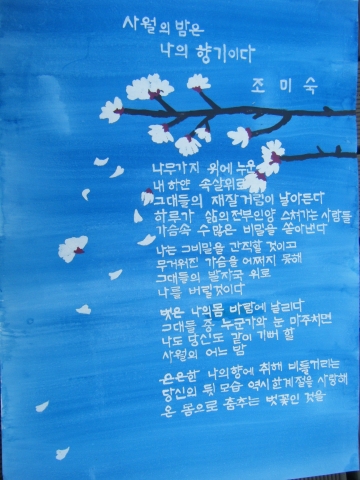 사월의 밤은
나의 향기이다
조미숙
나무가지 위에 누운
내 하얀 속살위로
그대들의 재잘거림이 날아든다
하루가 삶의전부인양 스쳐가는 사람들
가슴속 수많은 비밀을 쏟아낸다
나는 그비밀을 간직할 것이고
무거워진 가슴을 어쩌지 못해
그대들의 발자국 위로
나를 버릴것이다
벗은 나의몸 바람에 날리다
그대들 중 누군가와 눈 마주치면
나도 당신도 같이 기뻐 할
사월의 어느 밤
은은한 나의향에 취해 비틀거리는
당신의 뒷 모습 역시한계절을 사랑해
온 몸으로 춤추는 벗꽃인 것을